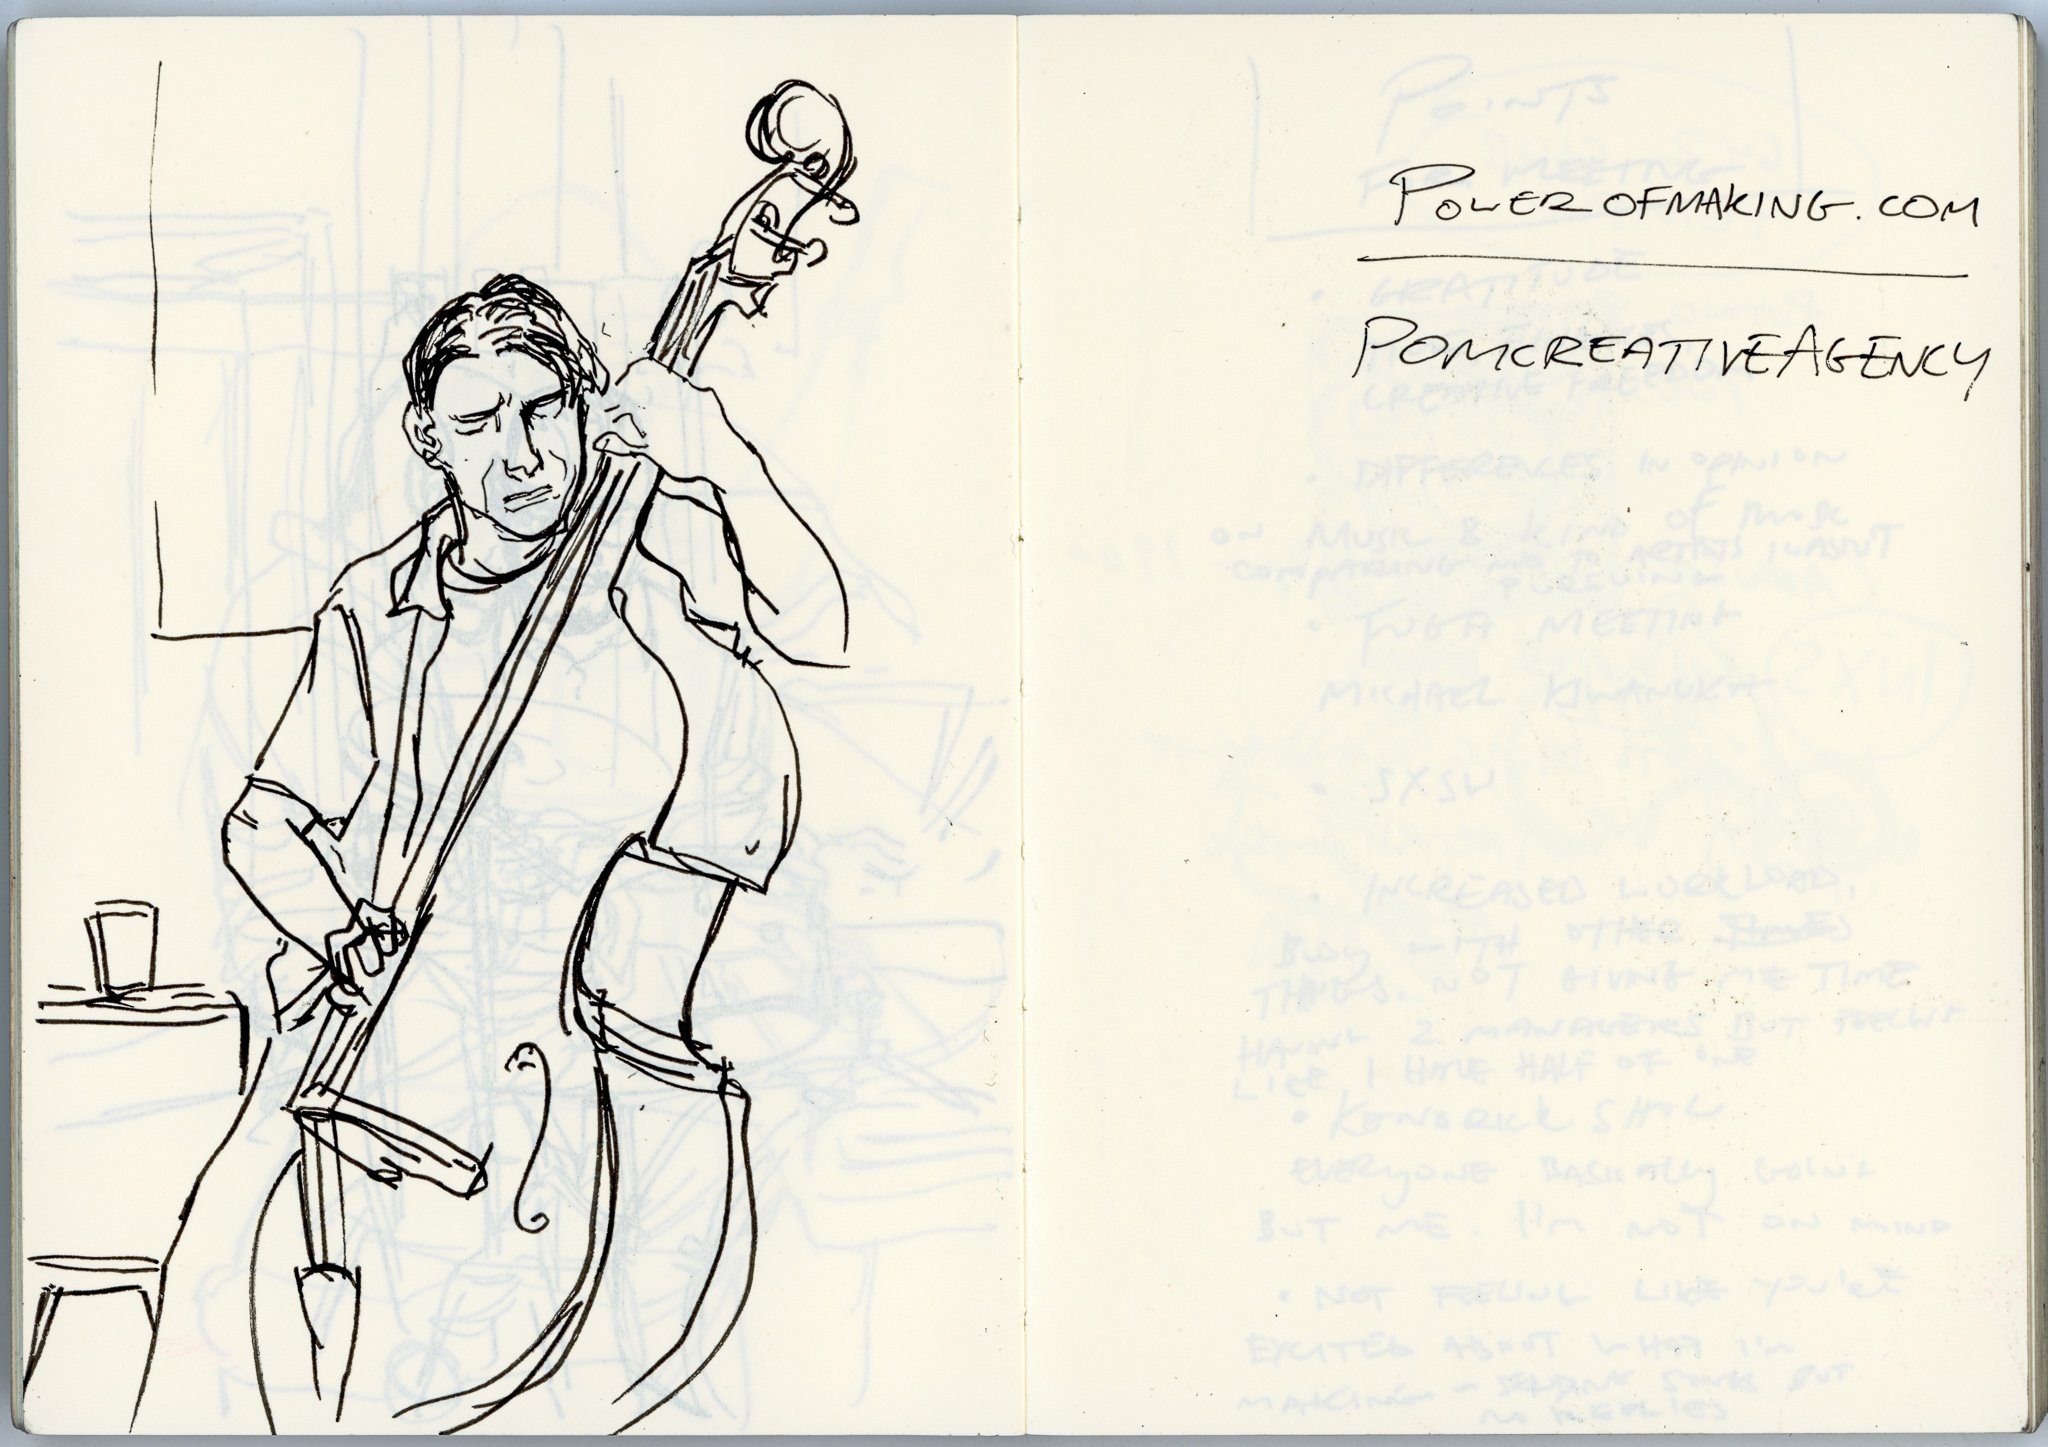 POWEROFMAKING.COM
POMCREATIVEAGENCY
POINTS
FOR MEETING
• GRATITUDE
CREATIVE FREEDOM
• DIFFERENCES IN OPINION
ON MUSIC & KIND OF MUSIC
COMPARING ME TO ARTISTS I WASN'T
• FUGA MEETING
MICHAEL KIWANUKA
• SXSW
• INCREASED WORKLOAD,
BUSY WITH OTHER
THINGS, NOT GIVING ME TIME
HAVING 2 MANAGERS BUT FEELING
LIKE I HAVE HALF OF ONE
• KENDRICK SHOW
EVERYONE BASICALLY GOING
BUT ME. I'M NOT ON MIND
• NOT FEELING LIKE YOU'RE
EXCITED ABOUT WHAT I'M
MAKING - SENDING SONGS BUT
NO REPLIES